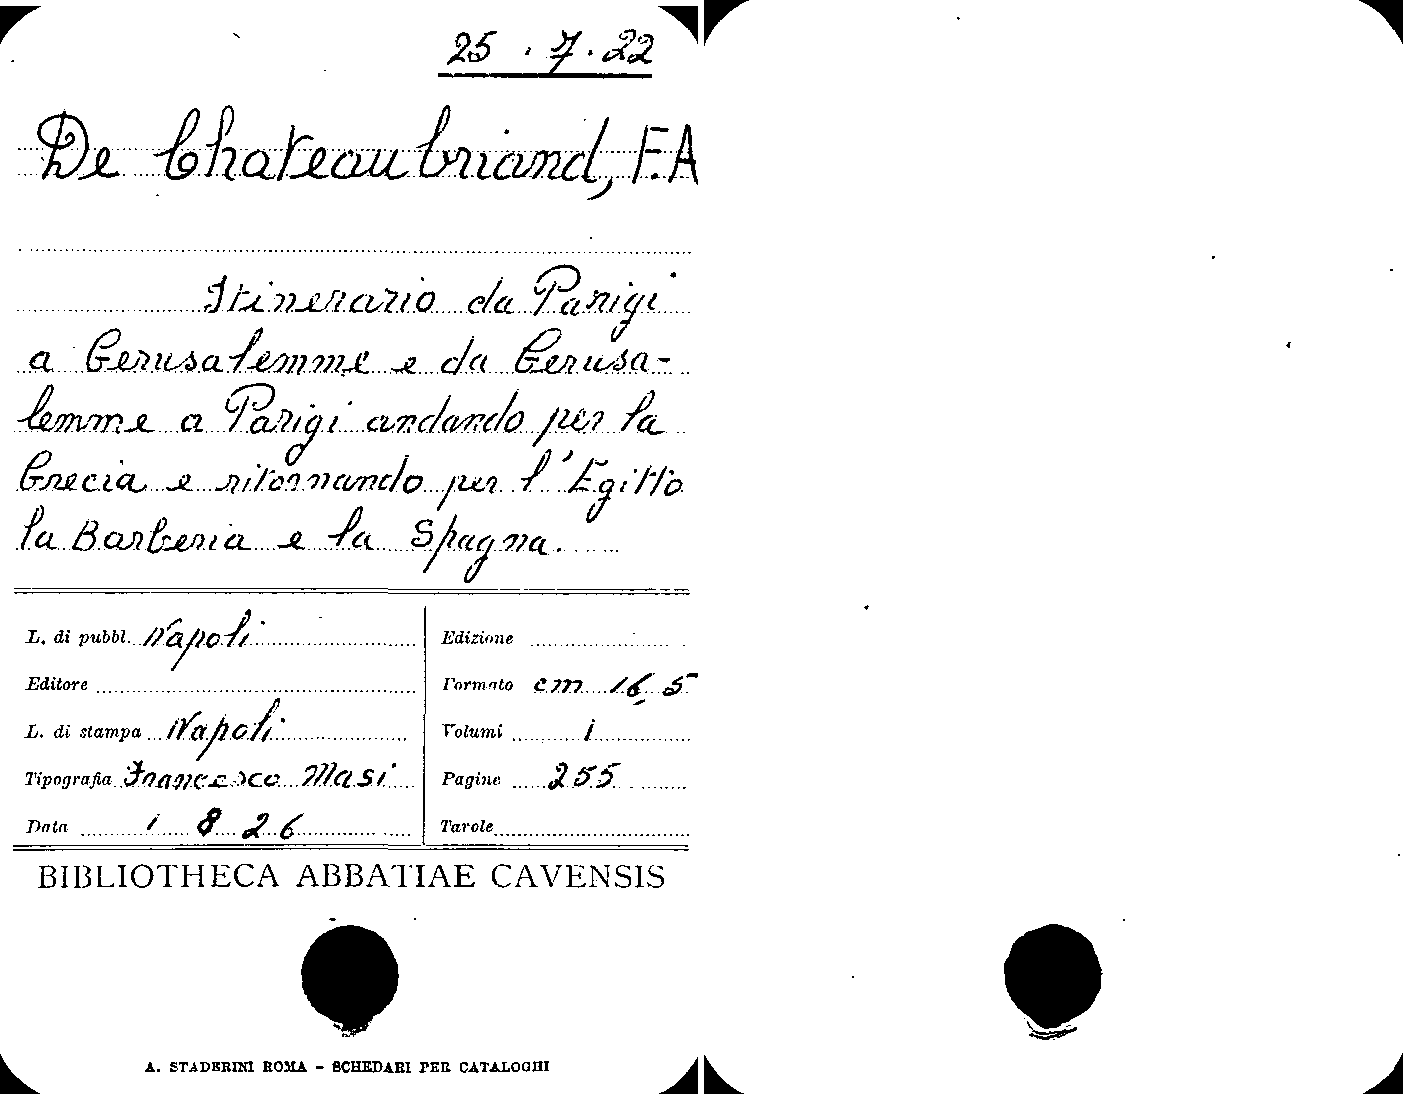 25 . 7 . 22
De Chateaubriand, F.A
Itinerario da Parigi
a Gerusalemme e da Gerusa-
lemme a Parigi andando per la
Grecia e ritornando per l'Egitto
la Barberia e la Spagna.
L. di pubbl. Napoli
Edizione
Editore
Formato cm 16,5
L. di stampa Napoli
Volumi 1
Tipografia Francesco Masi
Pagine 255
Data 1826
Tavole
BIBLIOTHECA ABBATIAE CAVENSIS
A. STADERINI ROMA - SCHEDARI PER CATALOGHI